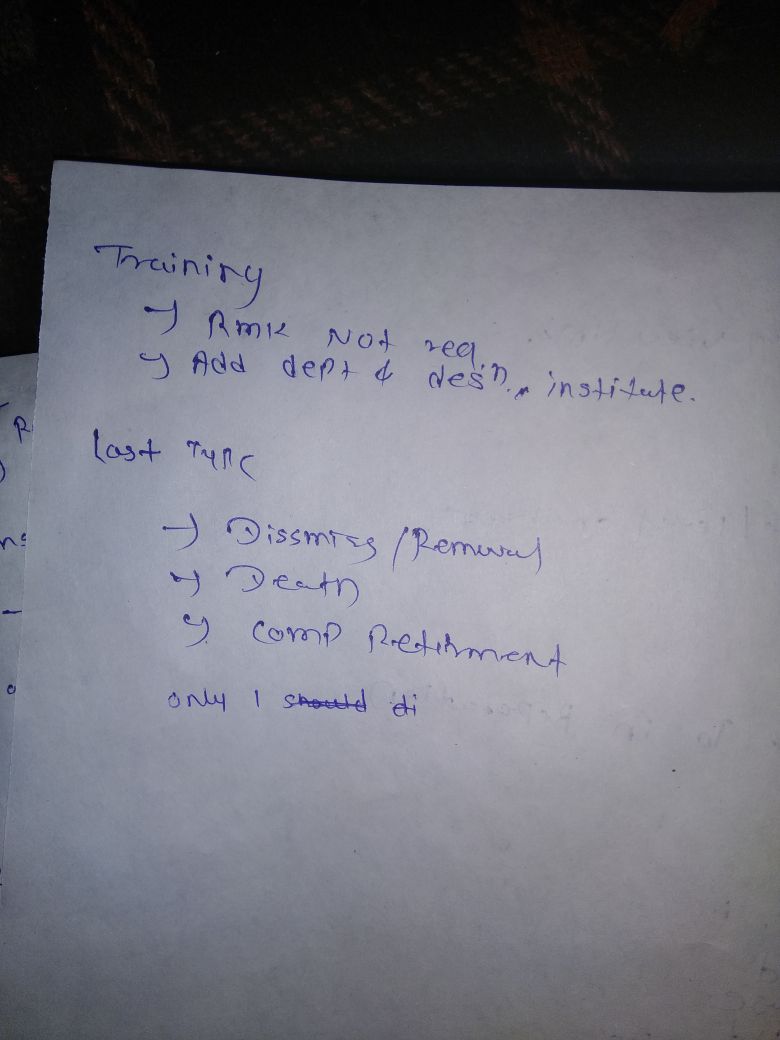 Training
→ Rmk Not req.
→ Add dept & desn., institute.
Last Type
→ Dissmiss / Removal
→ Death
→ comp Retirment
only 1 should di